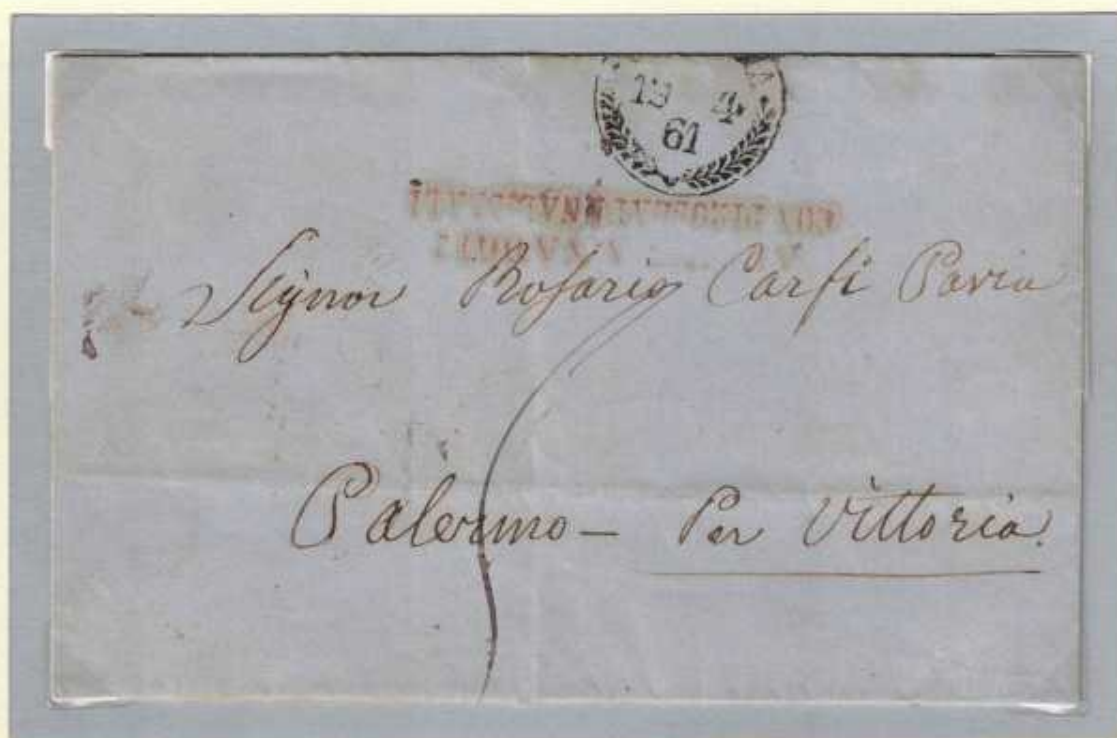 19 4
61
Signor Rosario Carfi Pavia
Palermo — Per Vittoria.